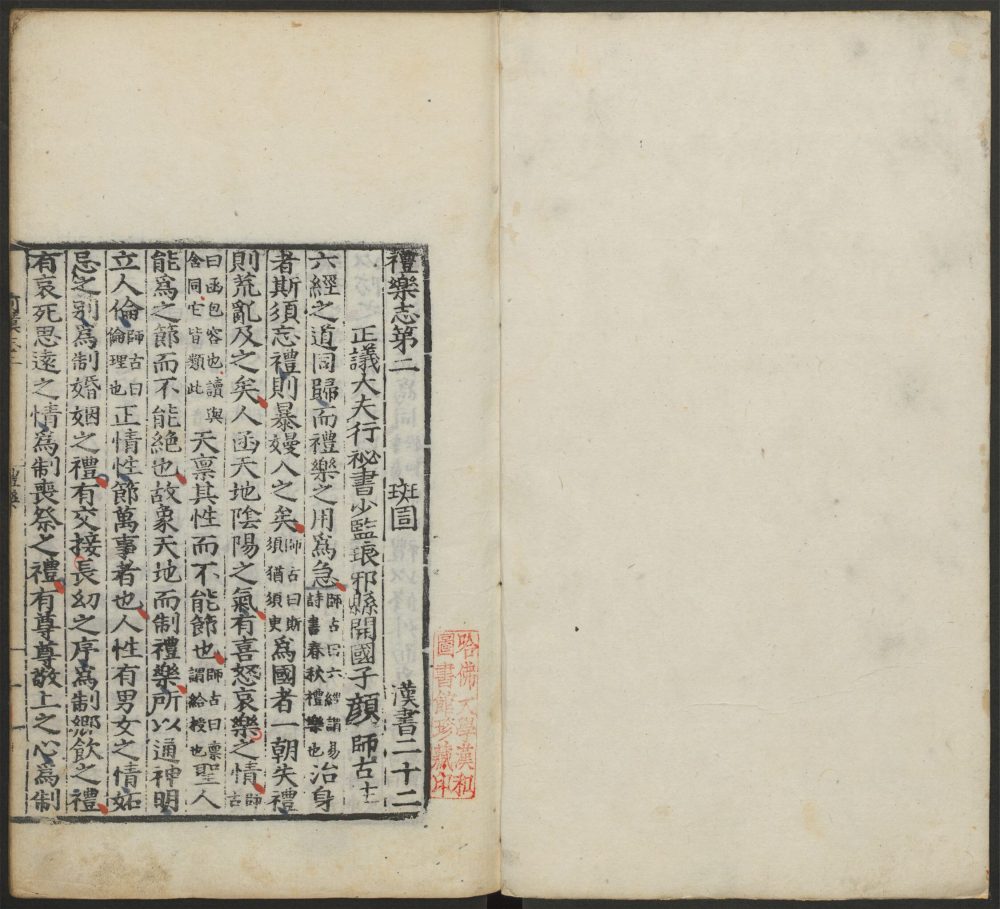 哈佛大學漢和
圖書館珍藏印
禮樂志第二 班固 漢書二十二
正議大夫行祕書少監琅邪縣開國子顏師古注
六經之道同歸而禮樂之用爲急師古曰六經謂易詩書春秋禮樂也治身
者斯須忘禮則暴嫚入之矣師古曰斯須猶須臾爲國者一朝失禮
則荒亂及之矣人函天地陰陽之氣有喜怒哀樂之情師古
曰函包容也讀與含同它皆類此天稟其性而不能節也師古曰稟謂給授也聖人
能爲之節而不能絶也故象天地而制禮樂所以通神明
立人倫師古曰倫理也正情性節萬事者也人性有男女之情妬
忌之別爲制婚姻之禮有交接長幼之序爲制鄉飲之禮
有哀死思遠之情爲制喪祭之禮有尊尊敬上之心爲制